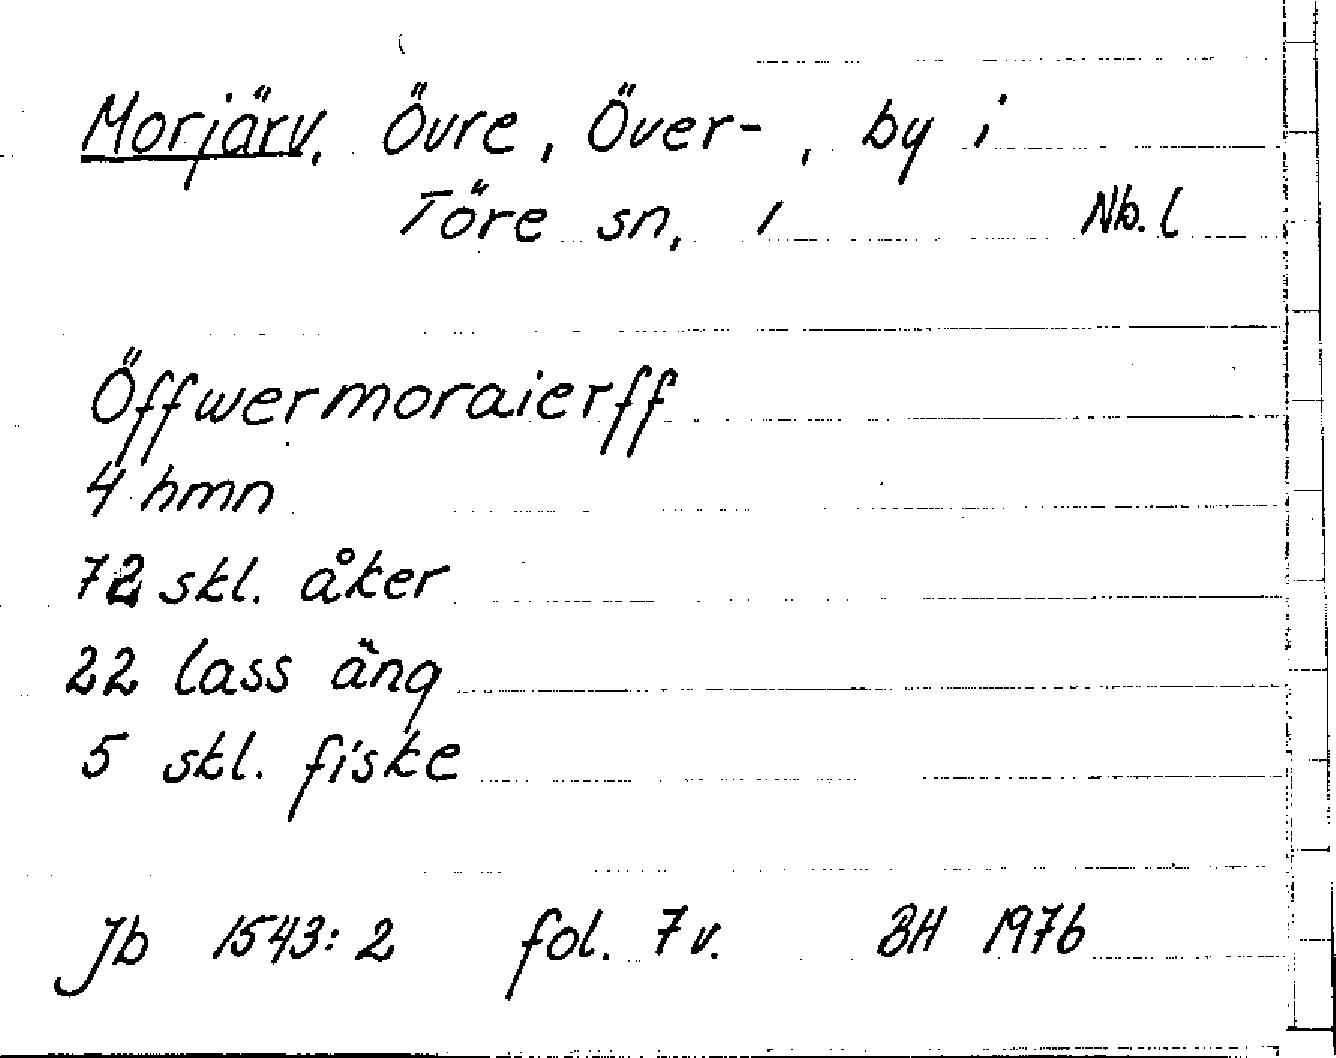 Morjärv, Övre, Över-, by i
Töre sn, / Nb. l
Öffwermoraierff
4 hmn
72 skl. åker
22 lass äng
5 skl. fiske
Jb 1543:2 fol. 7v. BH 1976